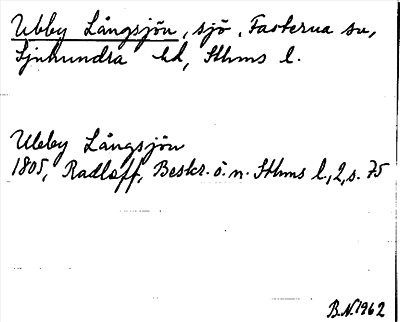 Ubby Långsjön, sjö, Fasterna sn,
Sjuhundra hd, Sthms l.
Ubby Långsjön
1805, Radloff, Beskr. ö. n. Sthms l., 2, s. 75
B.N. 1962